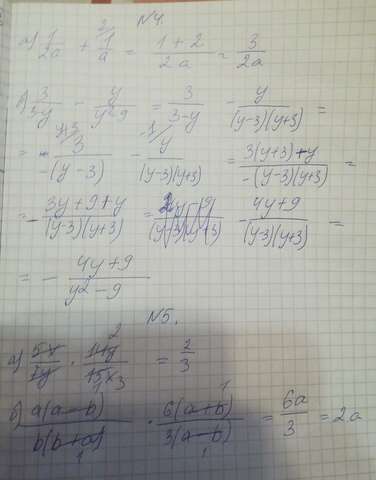 №4.
а) 1/2a + 2\1/a = (1+2)/2a = 3/2a
б) 3/(3-y) - y/(y²-9) = 3/(3-y) - y/((y-3)(y+3)) =
= y+3\3/(-(y-3)) - -1\y/((y-3)(y+3)) = (3(y+3)+y)/(-(y-3)(y+3)) =
= -(3y+9+y)/((y-3)(y+3)) = -(4y+9)/((y-3)(y+3)) =
= - (4y+9)/(y²-9)
№5.
а) 5x/7y · 14y/15x = 2/3
б) a(a-b)/b(b+a) · 6(a+b)/3(a-b) = 6a/3 = 2a